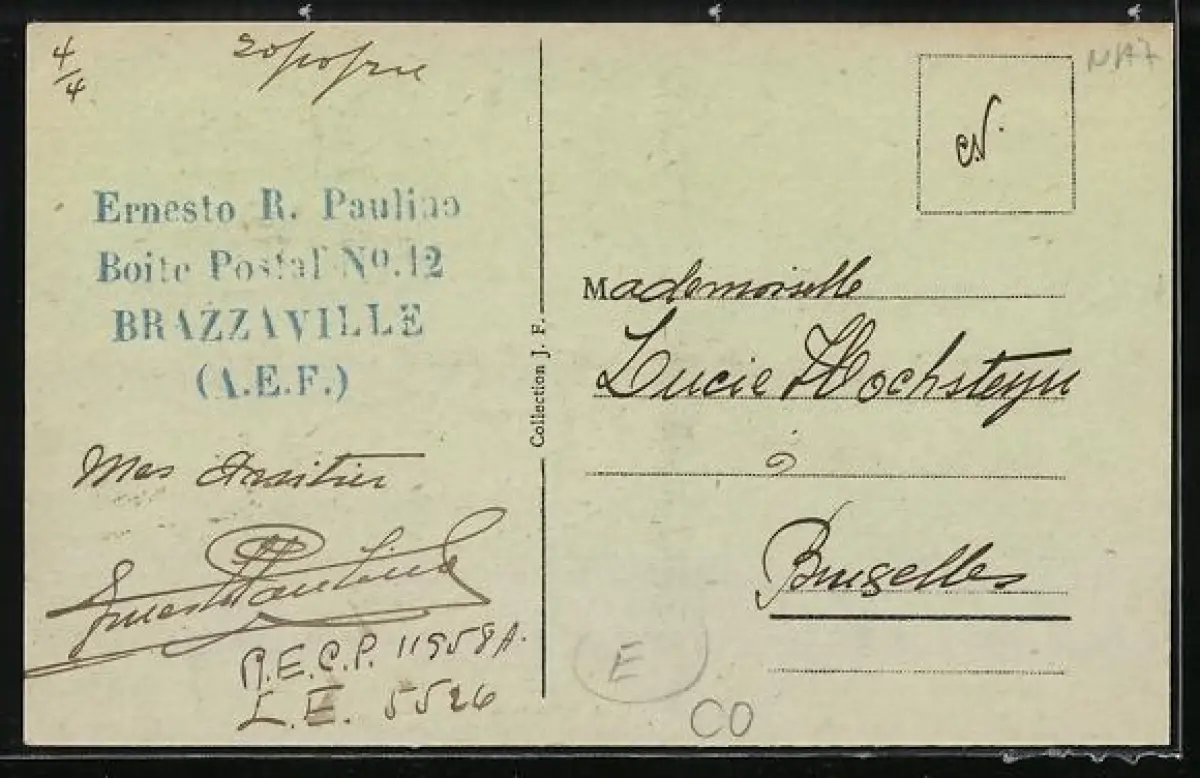 4/4
Ernesto R. Paulino
Boite Postal Nº. 12
BRAZZAVILLE
(A.E.F.)
Mes
Ernesto Paulino
A.E.C.P. 11958A.
L.E. 5526
Collection J. F.
Mademoiselle
Lucie Hochsteyn
à
Bruxelles
E
CO